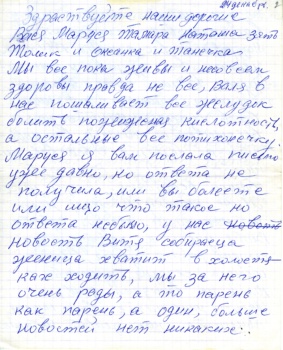 24 декабря.
Здравствуйте наши дорогие
Вася Маруся Тамара Наташа Зять
Толик и Оксанка и Танечка
Мы все пока живы и не совсем
здоровы правда не все, Валя в
нас помаливает все желудок
болить пониженая кислотность,
а остальные все потихонечку.
Маруся я вам послала письмо
уже давно, но ответа не
получила, или вы болеете
или ищо что такое но
ответа небыло, у нас новость
новость Витя собираеца
женица хватит в холостя
ках ходить, мы за него
очень рады, а то парень
как парень, а один, больше
новостей нет никаких.